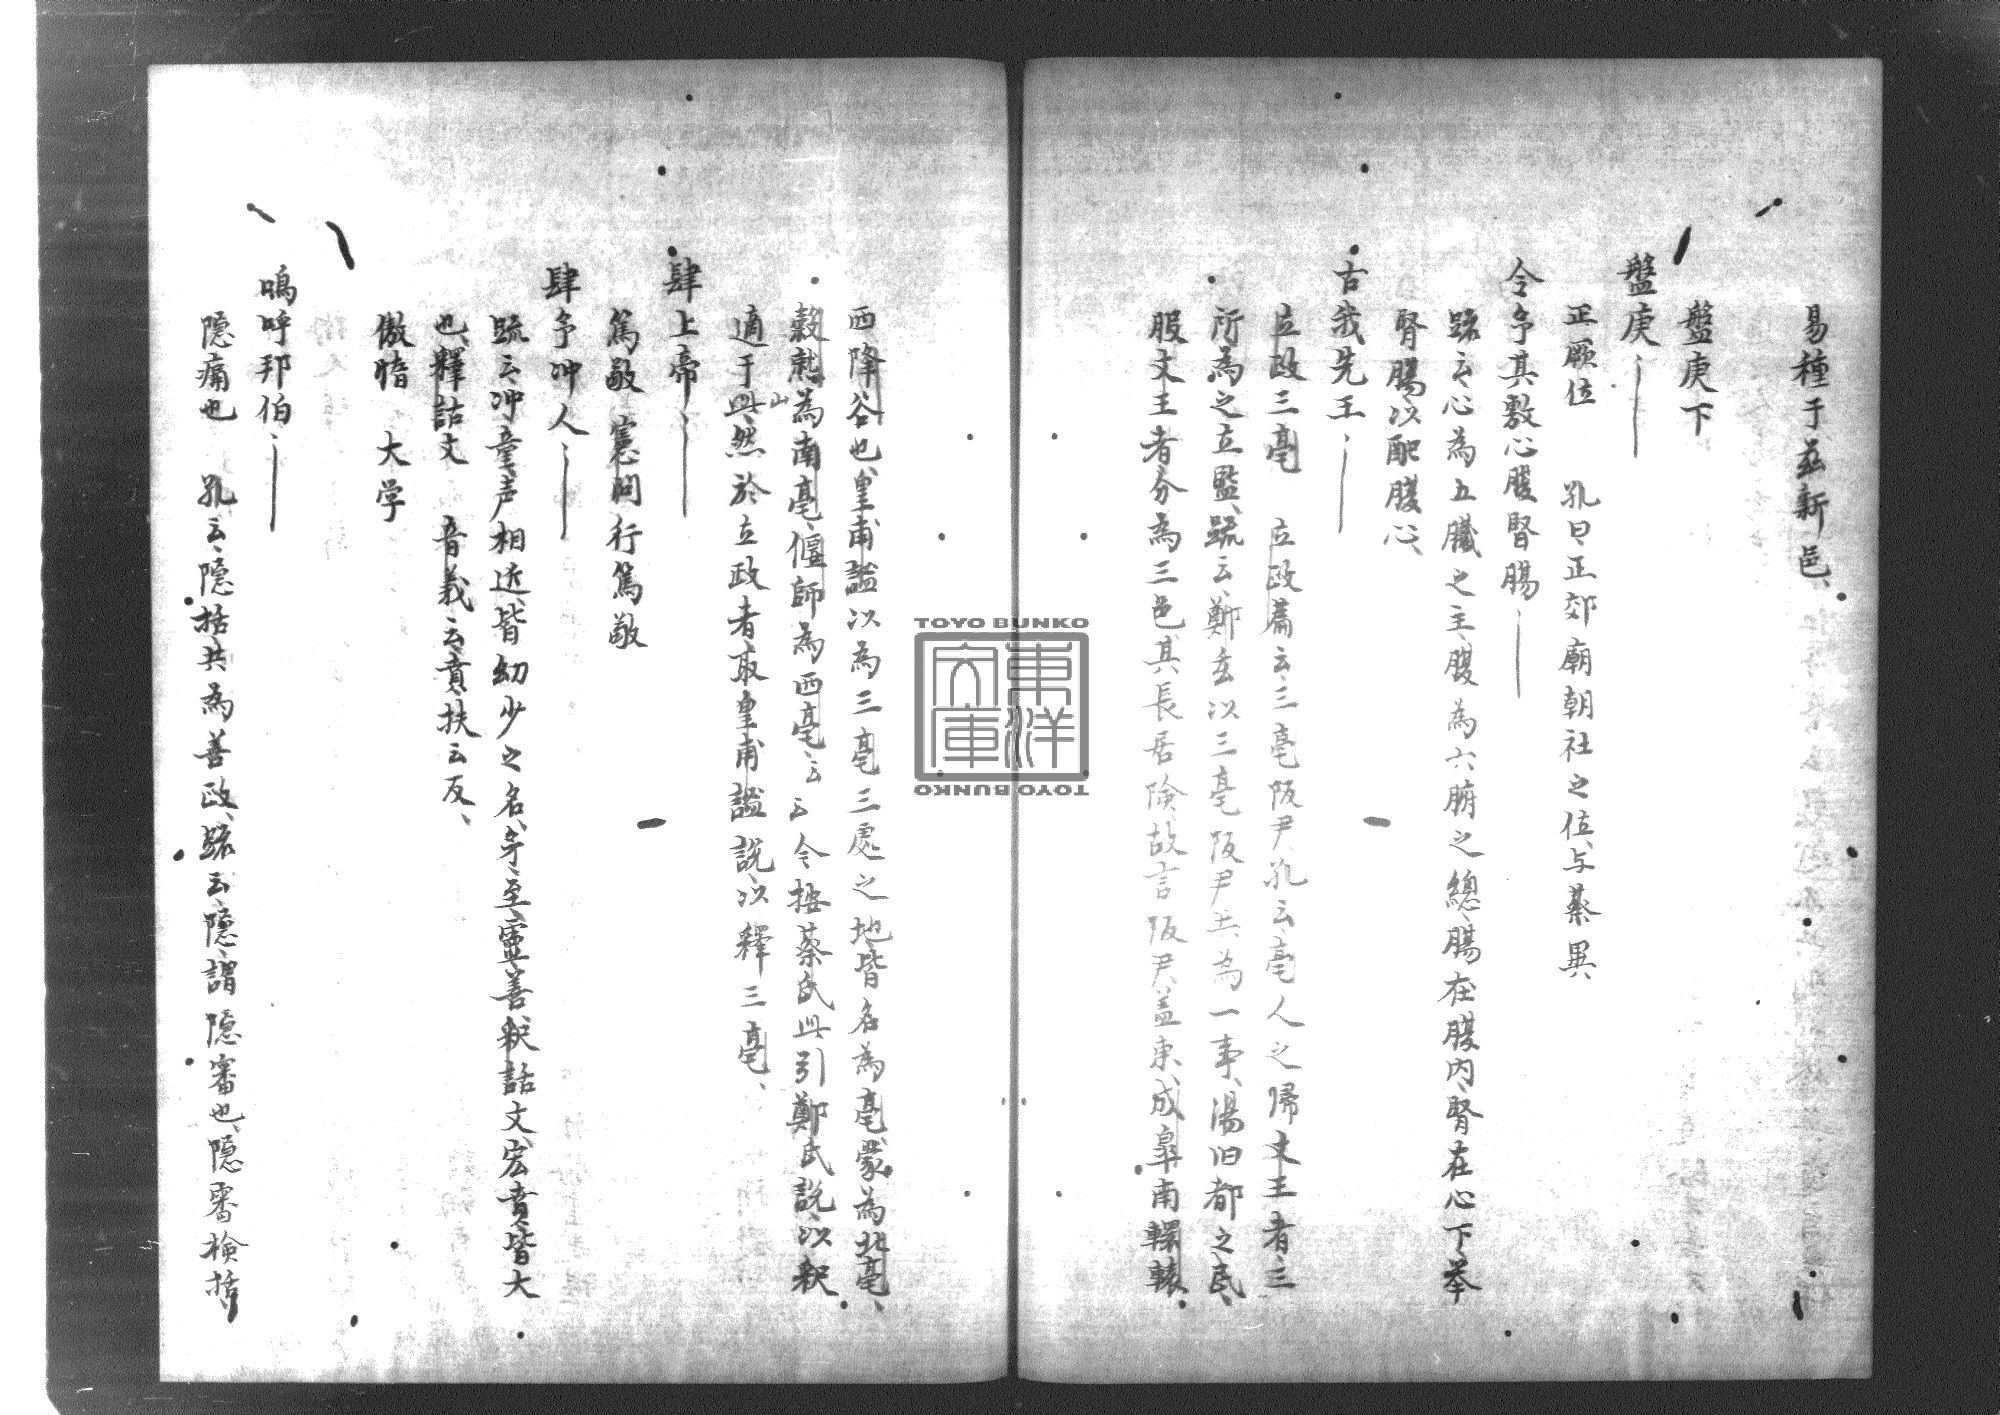 易種于茲新邑、
盤庚下
盤庚、――
正厥位　孔曰正郊廟朝社之位、与蔡異、
今予其敷心腹腎腸――
疏云心為五臓之主、腹為六腑之總、腸在腹内、腎在心下、挙
腎腸以配腹心、
古我先王、――
立政三亳　立政篇云、三亳阪尹、孔云、亳人之帰文王者三
所為之立監、疏云、鄭玄以三亳阪尹共為一事、湯旧都之民、
服文王者分為三邑、其長居険、故言阪尹、盖東、成皐南轘轅、
西降谷也、皇甫謐以為三亳三處之地皆名為亳、蒙為北亳、
穀熟為南亳、偃師為西亳、云云、今按蔡氏此引鄭氏説、以釈
適于山、然於立政者取皇甫謐説、以釋三亳、
肆上帝、――
篤敬　憲問行篤敬
肆予冲人、――
疏云冲童声相近、皆幼少之名、予、至、靈、善、釈詁文、宏賁皆大
也、釋詁文　音義云賁扶云反、
傲惰　大学
嗚呼邦伯、――
隠痛也　孔云、隠括共為善政、疏云、隠、謂隠審也、隠審検括
TOYO BUNKO
東洋文庫
TOYO BUNKO